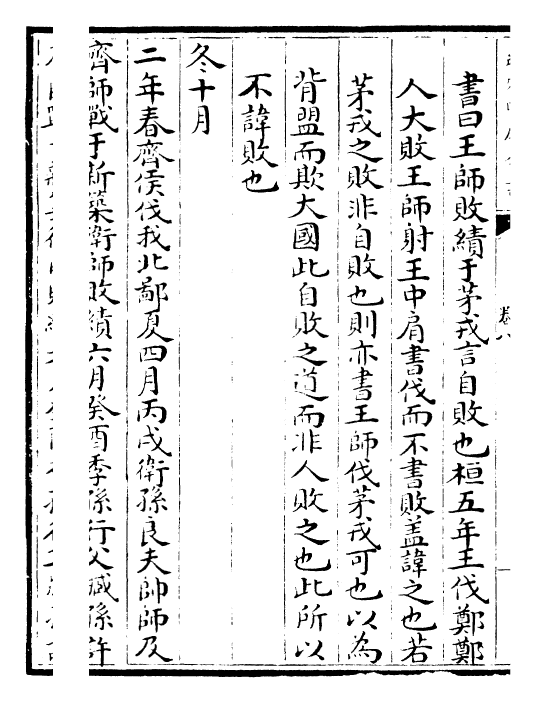 卷八
書曰王師敗績于茅戎言自敗也桓五年王伐鄭鄭
人大敗王師射王中肩書伐而不書敗盖諱之也若
茅戎之敗非自敗也則亦書王師伐茅戎可也以為
背盟而欺大國此自敗之道而非人敗之也此所以
不諱敗也
冬十月
二年春齊侯伐我北鄙夏四月丙戌衛孫良夫帥師及
齊師戰于新築衛師敗績六月癸酉季孫行父臧孫許